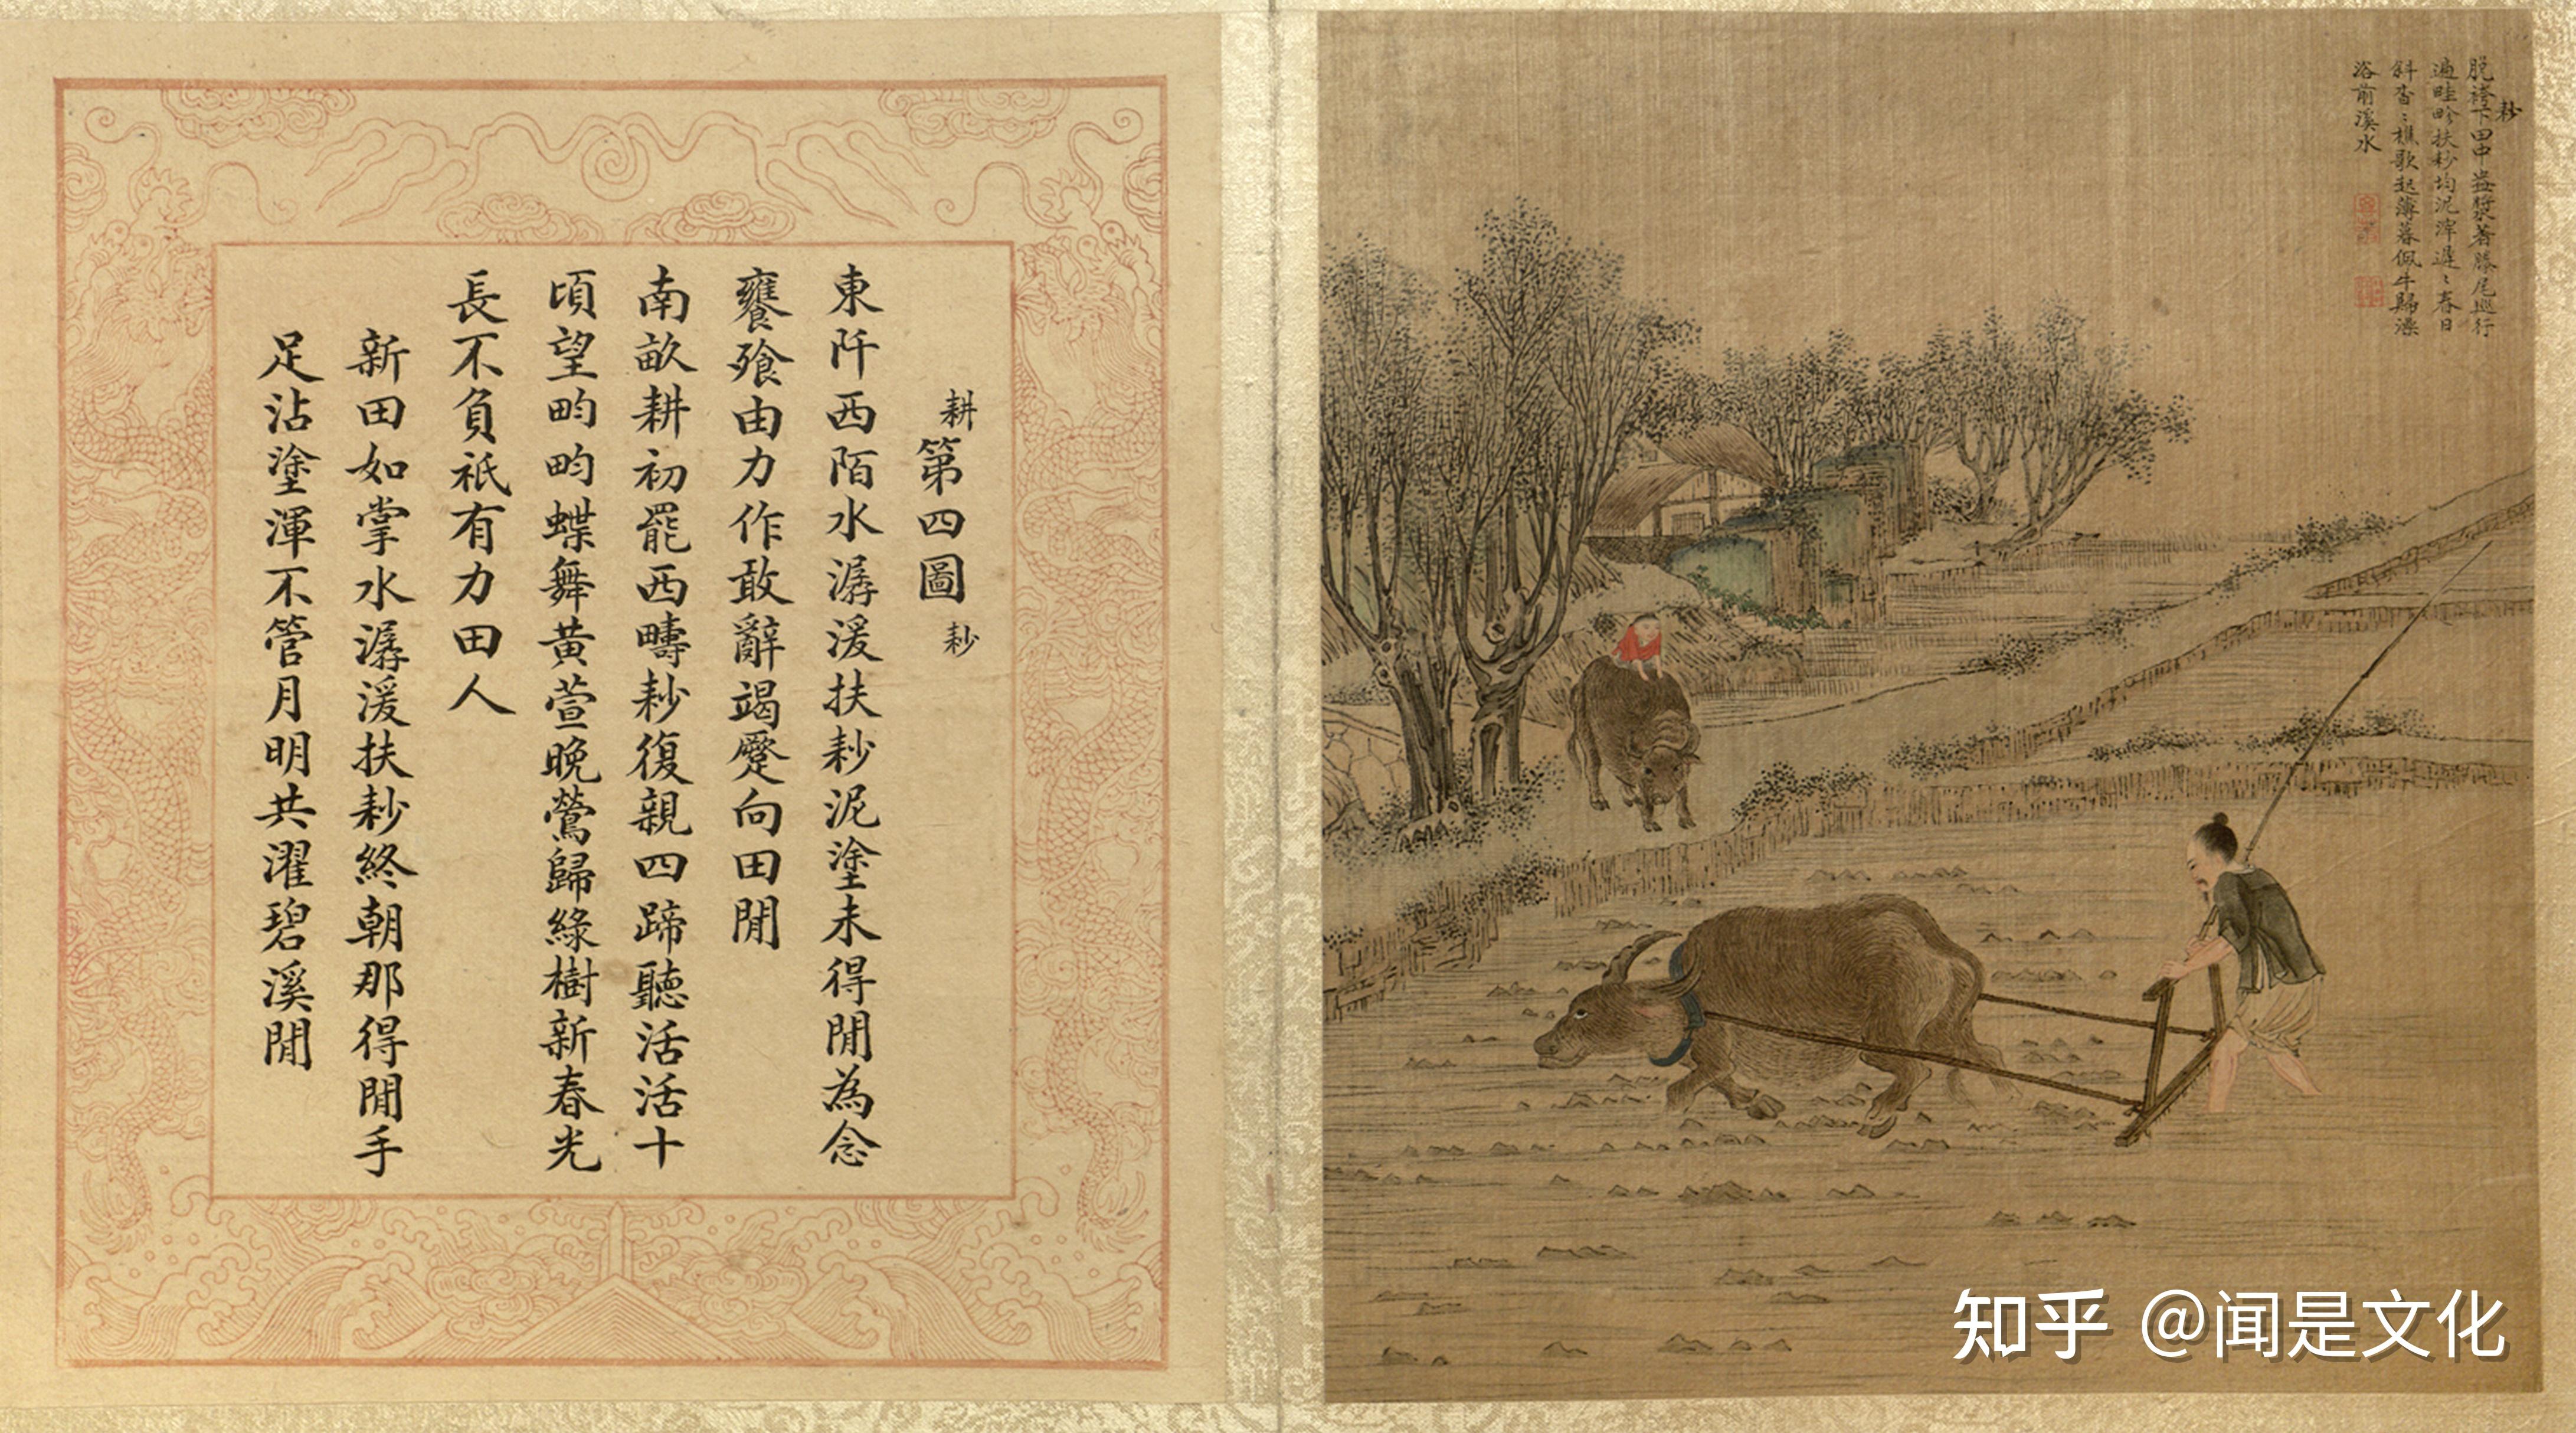 耕第四圖 耖
東阡西陌水潺湲扶耖泥塗未得閒為念
饔飧由力作敢辭竭蹷向田閒
南畝耕初罷西疇耖復親四蹄聽活活十
頃望畇畇蝶舞黃萱晚鶯歸綠樹新春光
長不負祇有力田人
新田如掌水潺湲扶耖終朝那得閒手
足沾塗渾不管月明共濯碧溪閒
耖
脫袴下田中盎漿著塍尾巡行
遍畦畛扶耖均泥滓遲〻春日
斜杳〻樵歌起薄暮佩牛歸濯
浴前溪水
知乎 @闻是文化